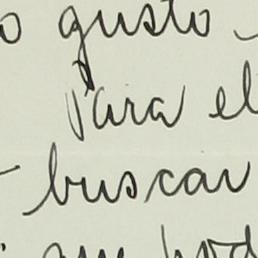 o gusto
para el
buscar